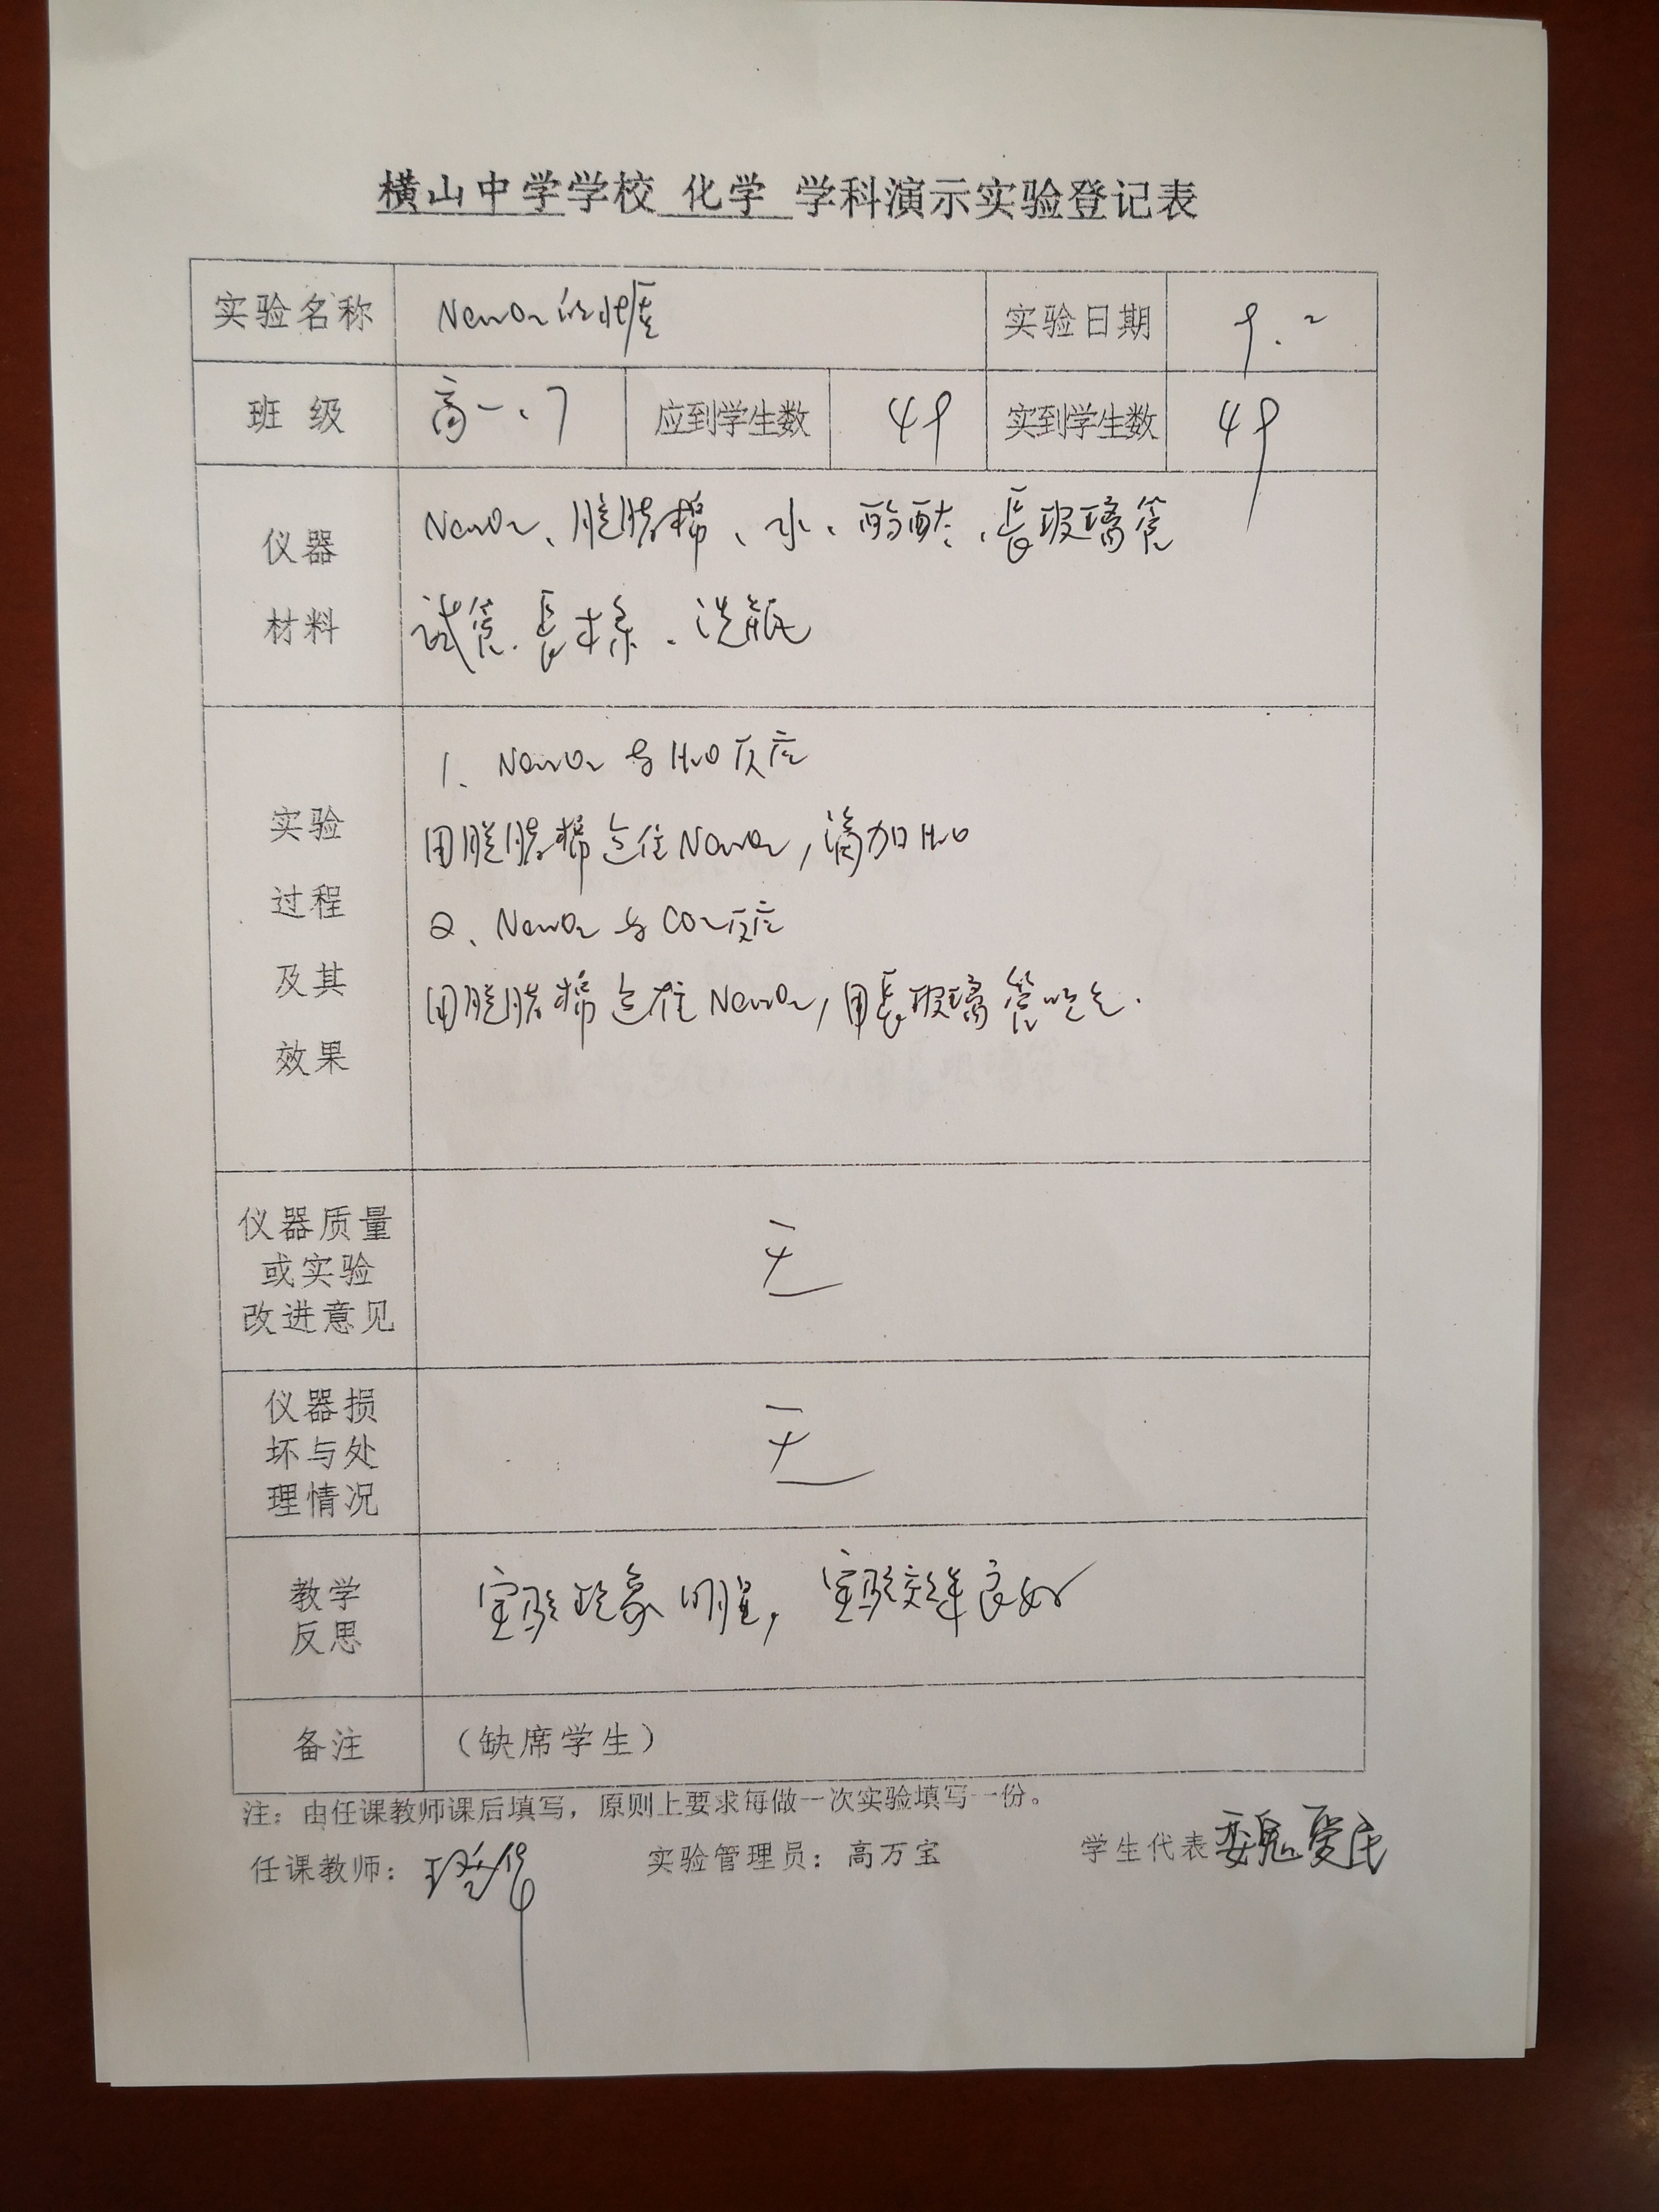 横山中学学校 化学 学科演示实验登记表
实验名称 Na2O2的性质 实验日期 9.2
班级 高一.7 应到学生数 49 实到学生数 49
仪器
材料
Na2O2、脱脂棉、水、酚酞、長玻璃管
试管、長木条、洗瓶
实验
过程
及其
效果
1、Na2O2与H2O反应
用脱脂棉包住Na2O2,滴加H2O
2、Na2O2与CO2反应
用脱脂棉包住Na2O2,用長玻璃管吹气.
仪器质量
或实验
改进意见
无
仪器损
坏与处
理情况
无
教学
反思
实验现象明显,实验效果良好
备注 (缺席学生)
注:由任课教师课后填写,原则上要求每做一次实验填写一份。
任课教师: 实验管理员:高万宝 学生代表